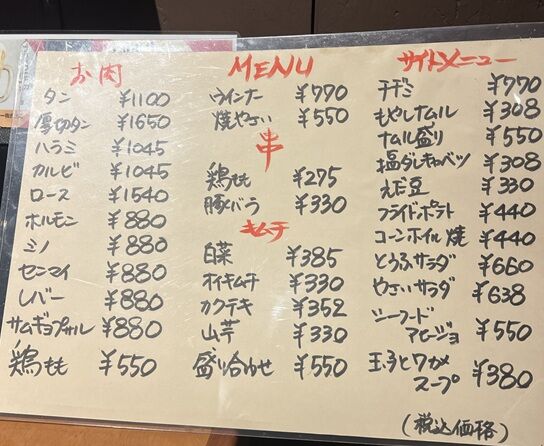 お肉
タン ¥1100
厚切タン ¥1650
ハラミ ¥1045
カルビ ¥1045
ロース ¥1540
ホルモン ¥880
ミノ ¥880
センマイ ¥880
レバー ¥880
サムギョプサル ¥880
鶏もも ¥550
MENU
ウインナー ¥770
焼やさい ¥550
串
鶏もも ¥275
豚バラ ¥330
キムチ
白菜 ¥385
オイキムチ ¥330
カクテキ ¥352
山芋 ¥330
盛り合わせ ¥550
サイドメニュー
チヂミ ¥770
もやしナムル ¥308
ナムル盛り ¥550
塩ダレキャベツ ¥308
えだ豆 ¥330
フライドポテト ¥440
コーンホイル焼 ¥440
とうふサラダ ¥660
やさいサラダ ¥638
シーフード
アヒージョ ¥550
玉子とワカメ
スープ ¥380
(税込価格)